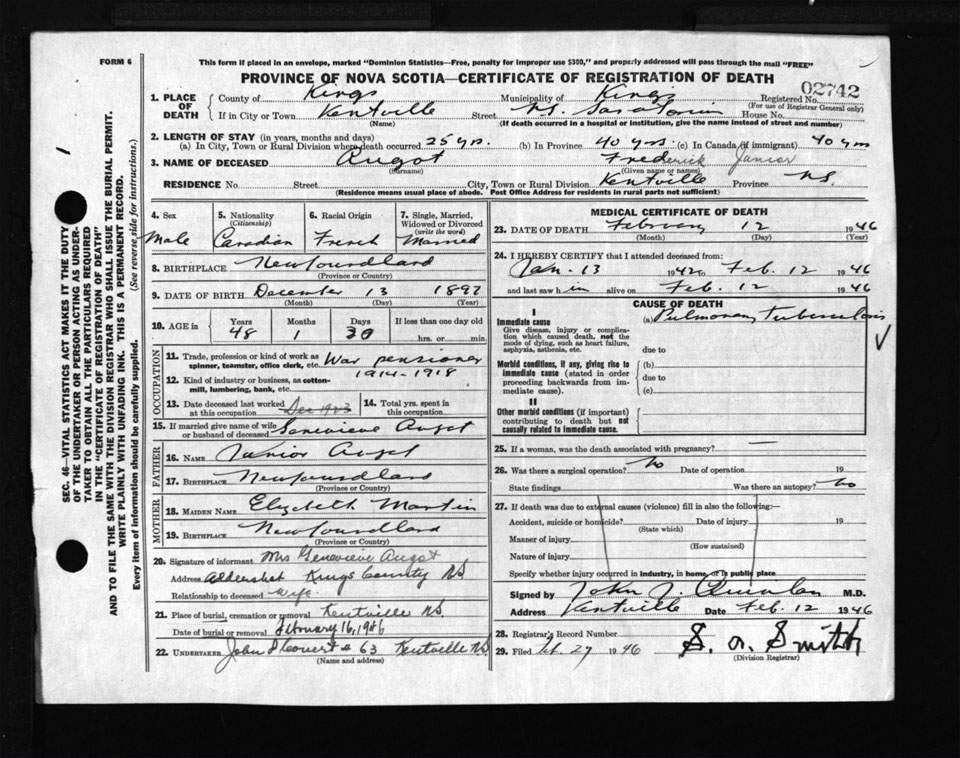 FORM 6
This form if placed in an envelope, marked "Dominion Statistics—Free, penalty for improper use $300," and properly addressed will pass through the mail "FREE"
PROVINCE OF NOVA SCOTIA—CERTIFICATE OF REGISTRATION OF DEATH
02742
1. PLACE OF DEATH
County of Kings Municipality of Kings Registered No.
(For use of Registrar General only)
If in City or Town Kentville Street N.S. Sanatorium House No.
(Name) (If death occurred in a hospital or institution, give the name instead of street and number)
2. LENGTH OF STAY (in years, months and days)
(a) In City, Town or Rural Division where death occurred 25 yrs. (b) In Province 40 yrs. (c) In Canada (if immigrant) 40 yrs
3. NAME OF DECEASED Augot Frederick Junior
(Surname) (Given name or names)
RESIDENCE No. Street City, Town or Rural Division Kentville Province N.S.
(Residence means usual place of abode. Post Office Address for residents in rural parts not sufficient)
4. Sex Male
5. Nationality (Citizenship) Canadian
6. Racial Origin French
7. Single, Married, Widowed or Divorced (write the word) Married
8. BIRTHPLACE Newfoundland
(Province or Country)
9. DATE OF BIRTH December 13 1897
(Month) (Day) (Year)
10. AGE in Years Months Days If less than one day old
48 1 30 hrs. or min.
OCCUPATION
11. Trade, profession or kind of work as spinner, teamster, office clerk, etc. War pensioner
1914-1918
12. Kind of industry or business, as cotton-mill, lumbering, bank, etc.
13. Date deceased last worked at this occupation Dec 1923
14. Total yrs. spent in this occupation
15. If married give name of wife or husband of deceased Genevieve Augot
FATHER
16. NAME Junior Augot
17. BIRTHPLACE Newfoundland
(Province or Country)
MOTHER
18. MAIDEN NAME Elizabeth Martin
19. BIRTHPLACE Newfoundland
(Province or Country)
20. Signature of informant Mrs Genevieve Augot
Address Aldershot Kings County NS
Relationship to deceased Wife
21. Place of burial, cremation or removal Kentville NS
Date of burial or removal February 16, 1946
22. UNDERTAKER John 63 Kentville NS
(Name and address)
MEDICAL CERTIFICATE OF DEATH
23. DATE OF DEATH February 12 1946
(Month) (Day) (Year)
24. I HEREBY CERTIFY that I attended deceased from:
Jan. 13 1942 to Feb. 12 1946
and last saw him alive on Feb. 12 1946
CAUSE OF DEATH
I
Immediate cause (a) Pulmonary tuberculosis
Give disease, injury or complication which caused death, not the mode of dying, such as heart failure, asphyxia, asthenia, etc.
due to
Morbid conditions, if any, giving rise to immediate cause (stated in order proceeding backwards from immediate cause).
(b)
due to
(c)
II
Other morbid conditions (if important) contributing to death but not causally related to immediate cause.
25. If a woman, was the death associated with pregnancy? —
26. Was there a surgical operation? No Date of operation 19
State findings Was there an autopsy? No
27. If death was due to external causes (violence) fill in also the following:—
Accident, suicide or homicide? Date of injury 19
(State which)
Manner of injury
(How sustained)
Nature of injury
Specify whether injury occurred in industry, in home, or in public place
Signed by John J. Quinlan M.D.
Address Kentville Date Feb. 12 1946
28. Registrar's Record Number
29. Filed Feb. 27 1946 S. A. Smith
(Division Registrar)
SEC. 46—VITAL STATISTICS ACT MAKES IT THE DUTY
OF THE UNDERTAKER OR PERSON ACTING AS UNDER-
TAKER TO OBTAIN ALL THE PARTICULARS REQUIRED
IN THE "CERTIFICATE OF REGISTRATION OF DEATH"
AND TO FILE THE SAME WITH THE DIVISION REGISTRAR WHO SHALL ISSUE THE BURIAL PERMIT.
WRITE PLAINLY WITH UNFADING INK. THIS IS A PERMANENT RECORD.
Every item of information should be carefully supplied. (See reverse side for instructions.)